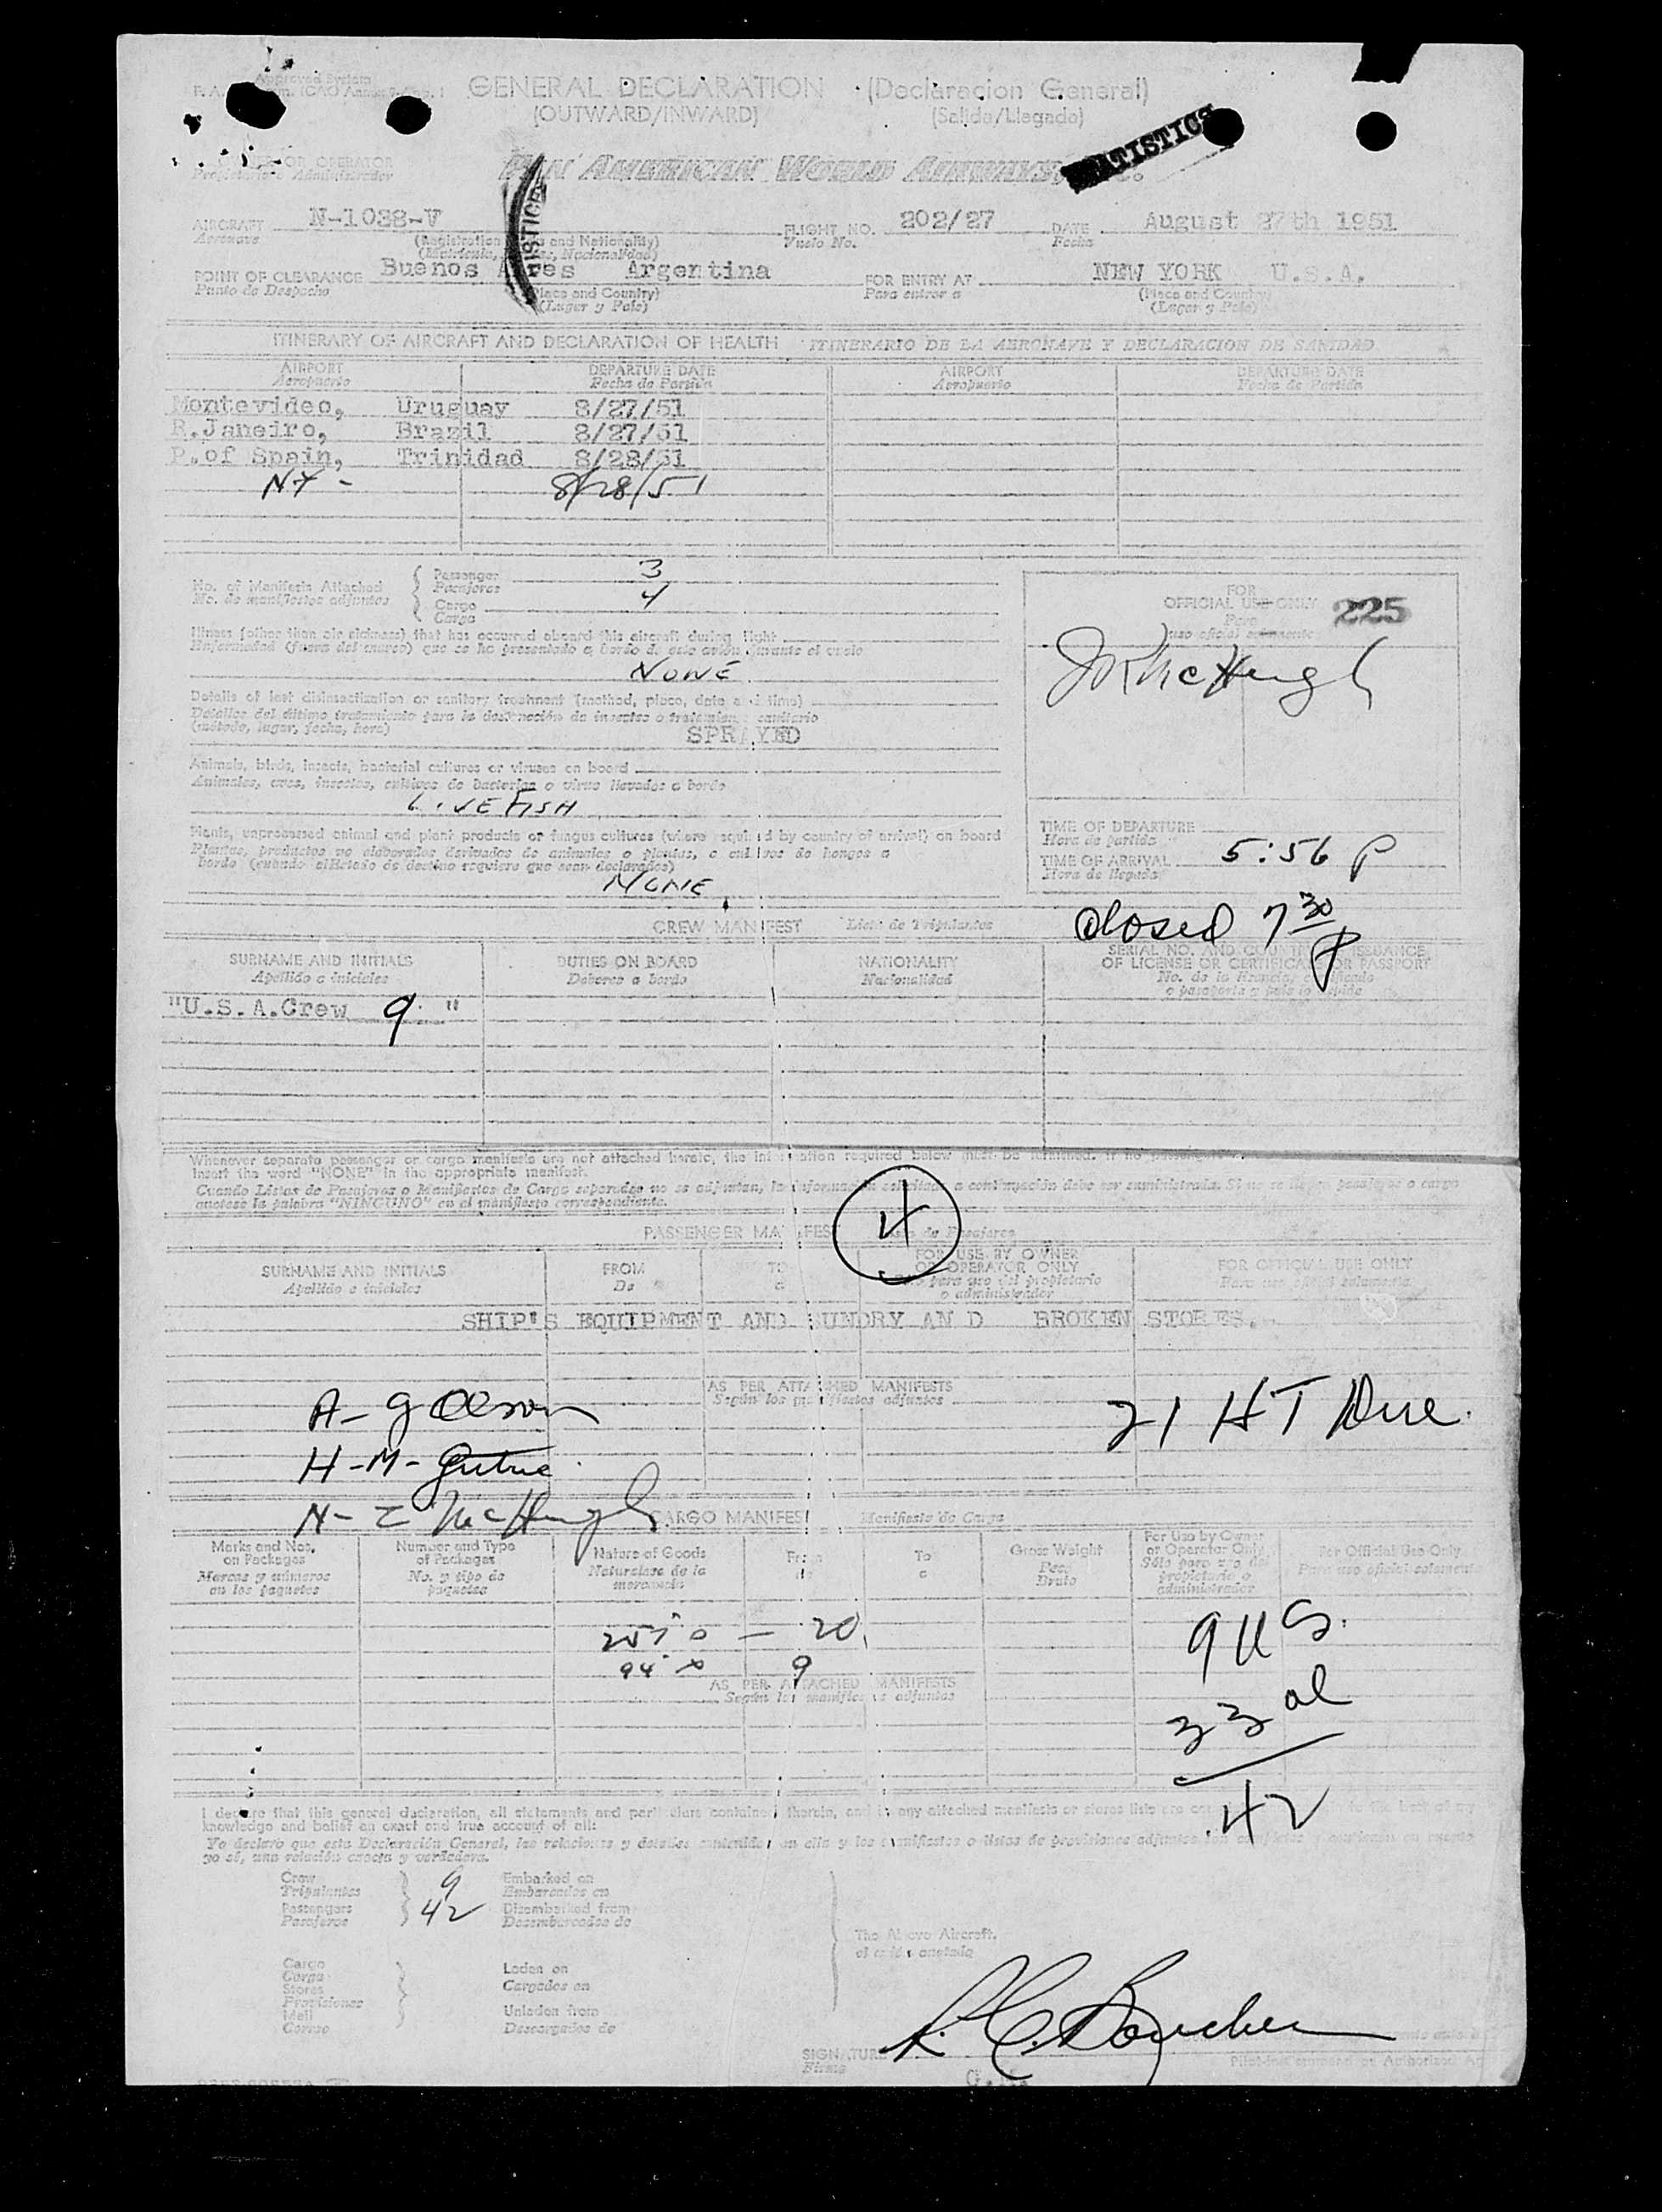 Approved System
GENERAL DECLARATION (Declaracion General)
(OUTWARD/INWARD) (Salida/Llegada)
OR OPERATOR
Propietario o Administrador
PAN AMERICAN WORLD AIRWAYS,
AIRCRAFT N-1038-V FLIGHT NO. 202/27 DATE August 27th 1951
Aeronave (Registration and Nationality) Vuelo No. Fecha
POINT OF CLEARANCE Buenos Argentina FOR ENTRY AT NEW YORK U.S.A.
Punto de Despacho (Place and Country) Para entrar a (Place and Country)
(Lugar y País) (Lugar y País)
ITINERARY OF AIRCRAFT AND DECLARATION OF HEALTH ITINERARIO DE LA AERONAVE Y DECLARACION DE SANIDAD
AIRPORT DEPARTURE DATE AIRPORT DEPARTURE DATE
Aeropuerto Fecha de Partida Aeropuerto Fecha de Partida
Montevideo, Uruguay 8/27/51
R.Janeiro, Brazil 8/27/51
P.of Spain, Trinidad 8/28/51
NY - 8/28/51
No. of Manifests Attached Passenger 3
No. de manifiestos adjuntos Pasajeros
Cargo 4
Carga
FOR
OFFICIAL USE ONLY 225
Para
uso oficial
Illness (other than air sickness) that has occurred aboard this aircraft during flight
Enfermedad (fuera del mareo) que se ha presentado a bordo de este avión durante el vuelo
NONE
JR McHugh
Details of last disinsectization or sanitary treatment (method, place, date and time)
Detalles del último tratamiento para la destrucción de insectos o tratamiento sanitario
(método, lugar, fecha, hora) SPRAYED
Animals, birds, insects, bacterial cultures or viruses on board
Animales, aves, insectos, cultivos de bacterias o virus llevados a bordo
LIVE FISH
Plants, unprocessed animal and plant products or fungus cultures (where required by country of arrival) on board
Plantas, productos no elaborados derivados de animales o plantas, o cultivos de hongos a
bordo (cuando el Estado de destino requiera que sean declarados)
NONE
TIME OF DEPARTURE
Hora de partida
TIME OF ARRIVAL 5:56 P
Hora de llegada
closed 7 30 P
CREW MANIFEST Lista de Tripulantes
SURNAME AND INITIALS DUTIES ON BOARD NATIONALITY SERIAL NO. AND COUNTRY ISSUANCE
Apellido e iniciales Deberes a bordo Nacionalidad OF LICENSE OR CERTIFICATE OR PASSPORT
"U.S.A.Crew 9 "
Whenever separate passenger or cargo manifests are not attached hereto, the information required below must be furnished.
Insert the word "NONE" in the appropriate manifest.
Cuando Listas de Pasajeros o Manifiestos de Carga separados no se adjuntan, la información solicitada a continuación debe ser suministrada. Si no se llevan pasajeros o carga
anótese la palabra "NINGUNO" en el manifiesto correspondiente.
4
PASSENGER MANIFEST de Pasajeros
SURNAME AND INITIALS FROM TO FOR USE BY OWNER FOR OFFICIAL USE ONLY
Apellido e iniciales De a OR OPERATOR ONLY Para uso oficial solamente
para uso del propietario
o administrador
SHIP'S EQUIPMENT AND SUNDRY AND BROKEN STORES.
AS PER ATTACHED MANIFESTS
Según los manifiestos adjuntos
A- G Olson 21 HT Due.
H-M-
N- McHugh
CARGO MANIFEST Manifiesto de Carga
Marks and Nos. Number and Type Nature of Goods From To Gross Weight For Use by Owner For Official Use Only
on Packages of Packages Naturaleza de la de a Peso or Operator Only Para uso oficial solamente
Marcas y números No. y tipo de mercancía Bruto Sólo para uso del
en los paquetes paquetes propietario o
administrador
20
9
AS PER ATTACHED MANIFESTS
Según los manifiestos adjuntos
9 US.
33 al
42
I declare that this general declaration, all statements and particulars contained therein, and in any attached manifests or stores lists are to the best of my
knowledge and belief an exact and true account of all:
Yo declaro que esta Declaración General, las relaciones y detalles contenidos en ella y los manifiestos o listas de provisiones adjuntos
yo sé, una relación exacta y verdadera.
Crew 9 Embarked on
Tripulantes Embarcados en
Passengers 42 Disembarked from
Pasajeros Desembarcados de
The Above Aircraft.
Cargo Laden on
Carga Cargados en
Stores
Provisiones Unladen from
Mail Descargados de
Correo
SIGNATURE
Firma